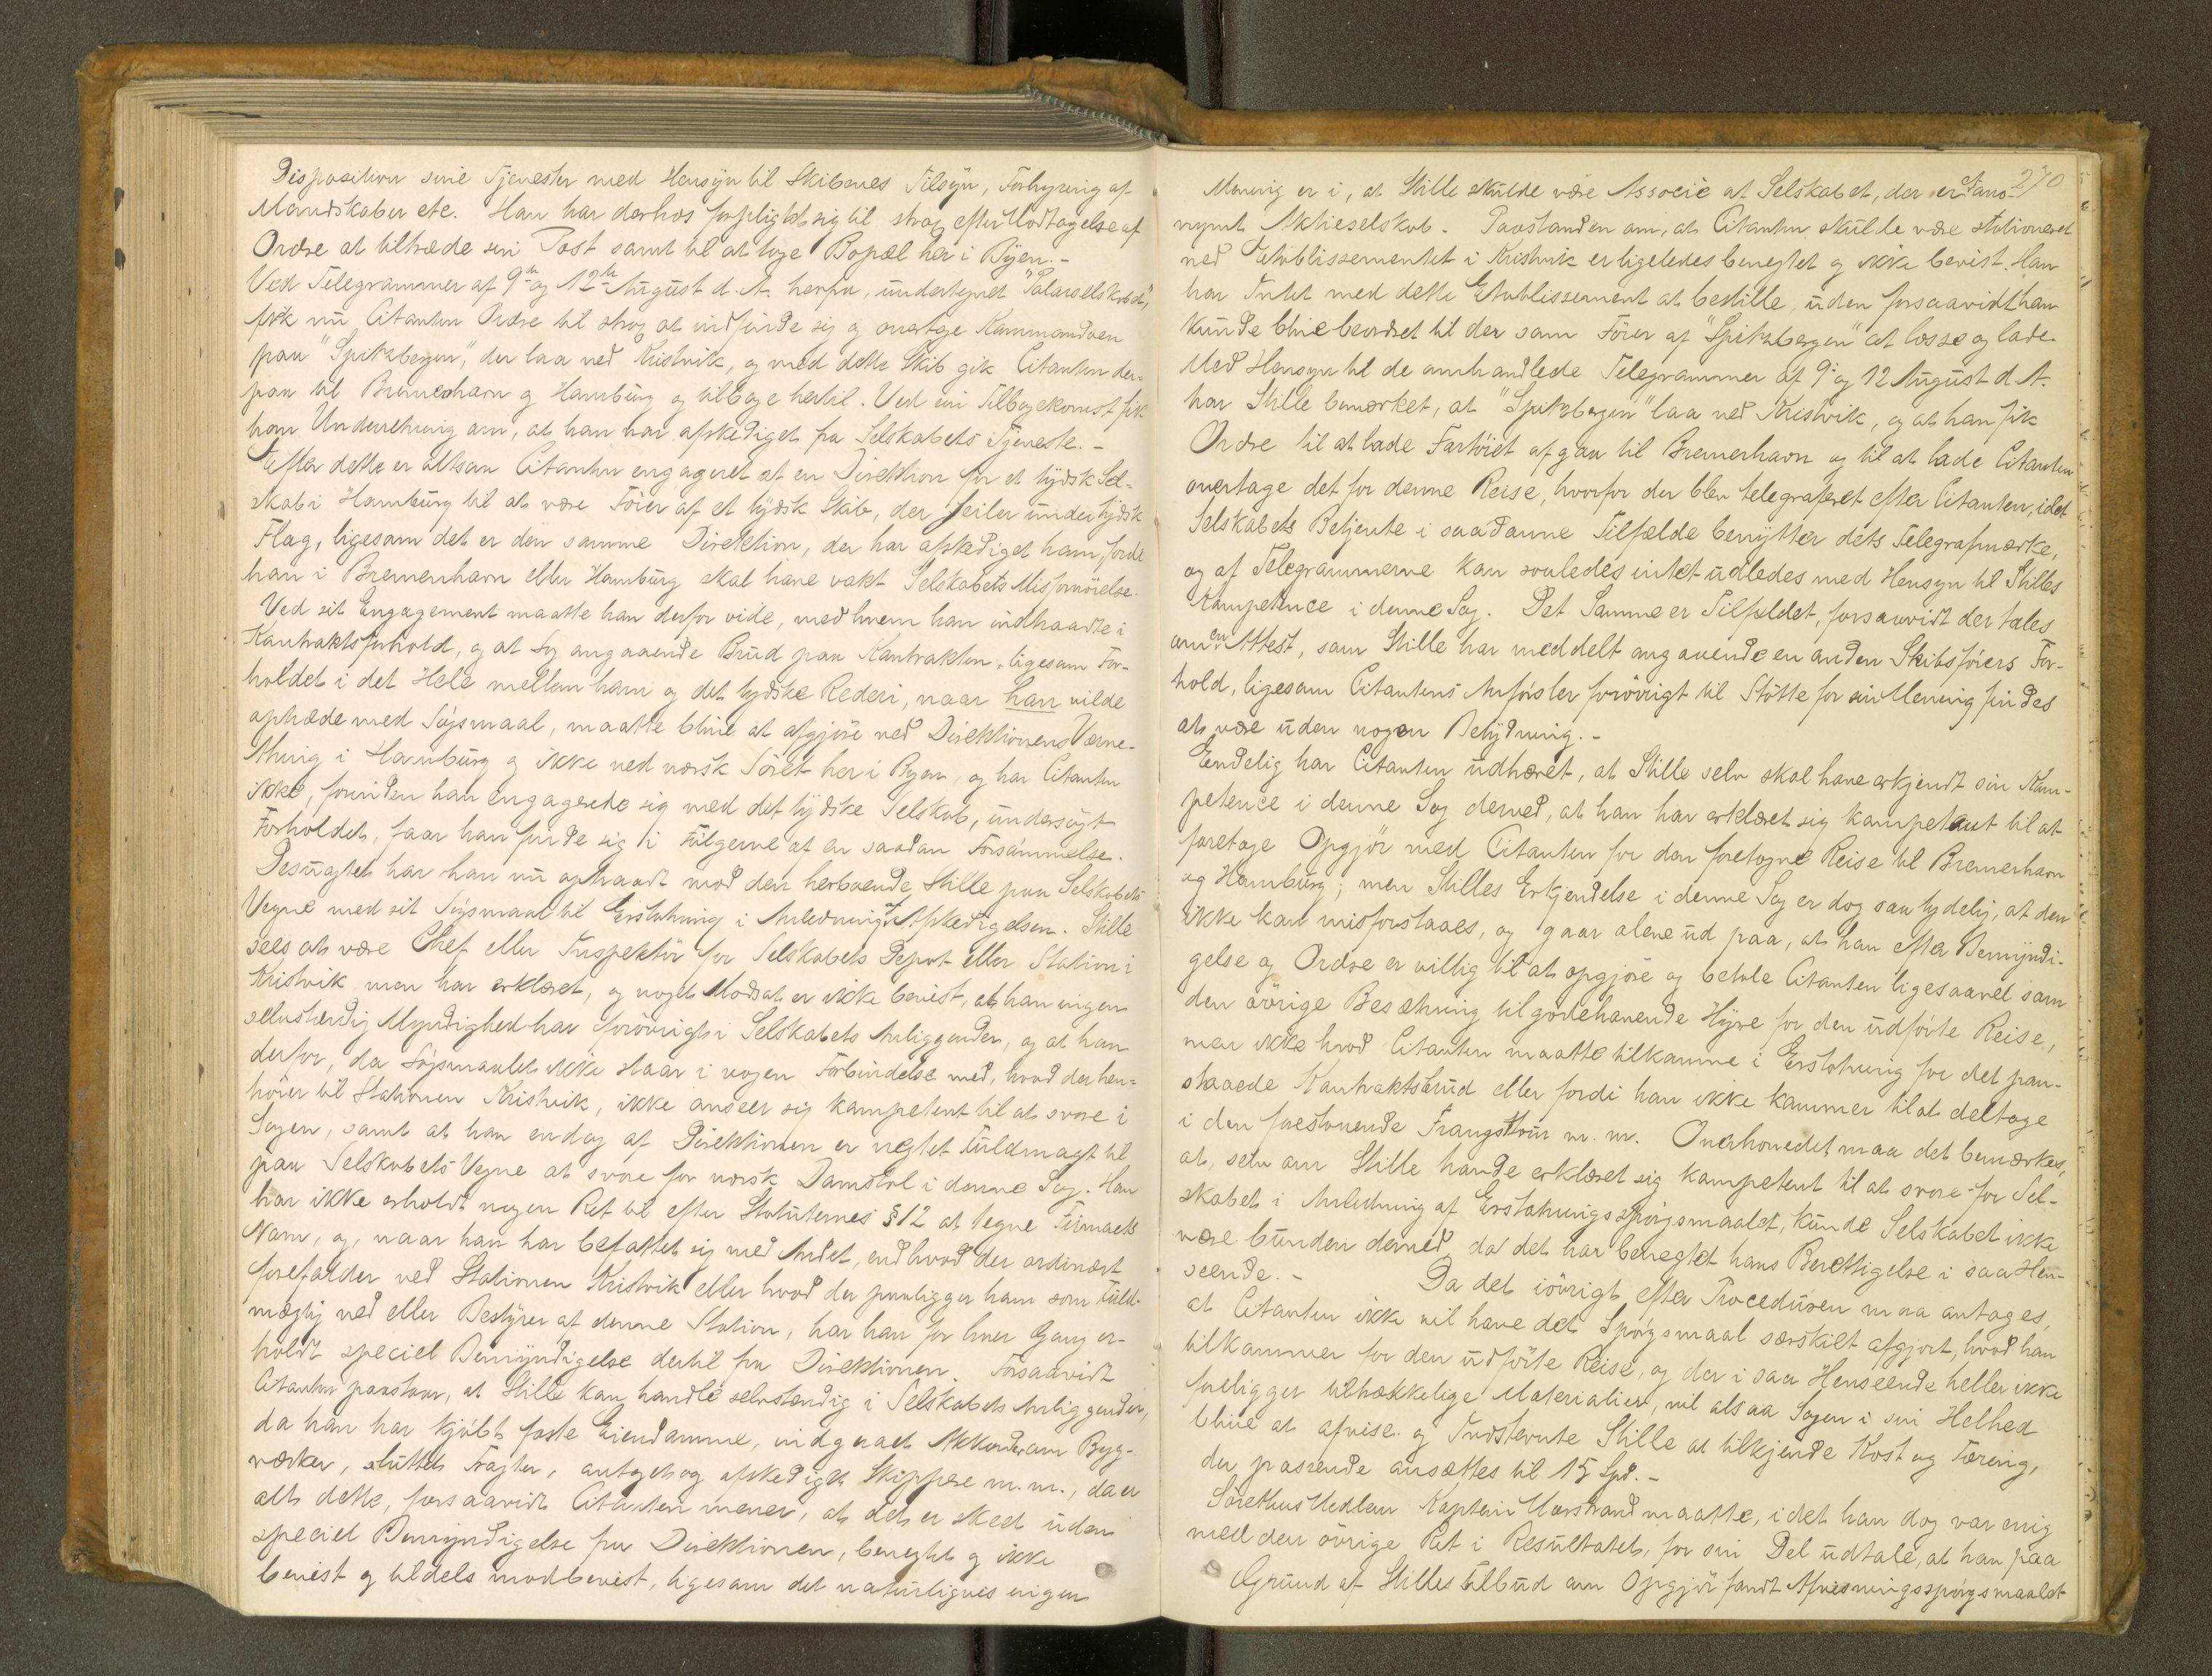 Disposition sine Tjenester med Hensyn til Skibenes Tilsyn, Forhyring af
Mandskaber etc. Han har derhos forpligtet sig til strax efter Modtagelse af
Ordre at tiltræde sin Post samt til at tage Bopæl her i Byen.-
Ved Telegrammer af 9de og 12te August d. A. herfra, undertegnet "Polarselskabet",
fik nu Citanten Ordre til strax at indfinde sig og overtage Kommandoen
paa "Spitzbergen", der laa ved Kristvik, og med dette Skib gik Citanten der-
paa til Bremerhavn og Hamburg og tilbage hertil. Ved sin Tilbagekomst fik
han Underretning om, at han har afskediget fra Selskabets Tjeneste.-
Efter dette er altsaa Citanten engageret af en Direktion for et tydsk Sel-
skab i Hamburg til at være Fører af et tydsk Skib, der seiler under tydsk
Flag, ligesom det er den samme Direktion, der har afskediget ham, fordi
han i Bremenhavn eller Hamburg skal have vakt Selskabets Misfornøielse.
Ved sit Engagement maatte han derfor vide, med hvem han indtraadte i
Kontraktsforhold, og at Sag angaaende Brud paa Kontrakten, ligesom For-
holdet i det Hele mellem ham og det tydske Rederi, naar han vilde
optræde med Søgsmaal, maatte blive at afgjøre ved Direktionens Værne-
thing i Hamburg og ikke ved norsk Søret her i Byen, og har Citanten
ikke, forinden han engagerede sig med det tydske Selskab, undersøgt
Forholdet, faar han finde sig i Følgerne af en saadan Forsømmelse.
Desuagtet har han nu optraadt mod den herboende Stille paa Selskabets
Vegne med sit Søgsmaal til Erstatning i Anledning af Afskedigelsen. Stille
sees at være Chef eller Inspektør for Selskabets Depot eller Station i
Kristvik men har erklæret, og noget Modsat er ikke bevist, at han ingen
selvstændig Myndighed har forøvrigt i Selskabets Anliggender, og at han
derfor, da Søgsmaalet ikke staar i nogen Forbindelse med, hvad der hen-
hører til Stationen Kristvik, ikke anseer sig kompetent til at svare i
Sagen, samt at han endog af Direktionen er negtet Fuldmagt til
paa Selskabets Vegne at svare for norsk Domstol i denne Sag. Han
har ikke erholdt nogen Ret til efter Statuternes §12 at tegne Firmaets
Navn, og, naar han har befattet sig med Andet, end hvad der ordinært
forefalder ved Stationen Kristvik eller hvad der paaligger ham som Fuld-
mægtig ved eller Bestyrer af denne Station, har han for hver Gang er-
holdt speciel Bemyndigelse dertil fra Direktionen. Forsaavidt
Citanten paastaar, at Stille kan handle selvstændig i Selskabets Anliggender,
da han har kjøbt faste Eiendomme, indgaaet Akkorder om Byg-
værker, sluttet Fragter, antaget og afskediget Skippere m. m., da er
alt dette, forsaavidt Citanten mener, at det er skeet uden
speciel Bemyndigelse fra Direktionen, benegtet og ikke
bevist og tildels modbevist, ligesom det naturligvis ingen
270
Mening er i, at Stille skulde være Associé at Selskabet, der er et ano-
nymt Aktieselskab. Paastanden om, at Citanten skulde være stationeret
ved Etablissementet i Kristvik er ligeledes benegtet og ikke bevist. Han
har Intet med dette Etablissement at bestille, uden forsaavidt han
kunde blive beordret til der som Fører af "Spitzbergen" at losse og lade.
Med Hensyn til de omhandlede Telegrammer af 9: og 12 August d. A.
har Stille bemærket, at "Spitzbergen" laa ved Kristvik, og at han fik
Ordre til at lade Fartøiet afgaa til Bremerhavn og til at lade Citanten
overtage det for denne Reise, hvorfor der blev telegraferet efter Citanten, idet
Selskabets Betjente i saadanne Tilfælde benytter dets Telegrafmærke,
og af Telegrammerne kan saaledes intet udledes med Hensyn til Stilles
Kompetence i denne Sag. Det Samme er Tilfældet, forsaavidt der tales
om en Attest, som Stille har meddelt angaaende en anden Skibsførers For-
hold, ligesom Citantens Anførsler forøvrigt til Støtte for sin Mening findes
at være uden nogen Betydning.-
Endelig har Citanten udhævet, at Stille selv skal have erkjendt sin Kom-
petence i denne Sag derved, at han har erklæret sig kompetent til at
foretage Opgjør med Citanten for den foretagne Reise til Bremerhavn
og Hamburg; men Stilles Erkjendelse i denne Sag er dog saa tydelig, at den
ikke kan misforstaaes, og gaar alene ud paa, at han efter Bemyndi-
gelse og Ordre er villig til at opgjøre og betale Citanten ligesaavel som
den øvrige Besætning tilgodehavende Hyre for den udførte Reise,
men ikke hvad Citanten maatte tilkomme i Erstatning for det paa-
staaede Kontraktsbrud eller fordi han ikke kommer til at deltage
i den forestaaende Fangsttour m. m. Overhovedet maa det bemærkes,
at, selv om Stille havde erklæret sig kompetent til at svare for Sel-
skabet i Anledning af Erstatningsspørgsmaalet, kunde Selskabet ikke
være bunden derved, da det har benegtet hans Berettigelse i saa Hen-
seende.- Da det iøvrigt efter Proceduren maa antages,
at Citanten ikke vil have det Spørgsmaal særskilt afgjort, hvad han
tilkommer for den udførte Reise, og der i saa Henseende heller ikke
foreligger tilstrækkelige Materialier, vil altsaa Sagen i sin Helhed
blive at afvise og Indstevnte Stille at tilkjende Kost og Tæring,
der passende ansættes til 15 Spd.-
Sørettens Medlem Kaptein Morstrand maatte, idet han dog var enig
med den øvrige Ret i Resultatet, for sin Del udtale, at han paa
Grund af Stilles Tilbud om Opgjør fandt Afvisningsspørgsmaalet